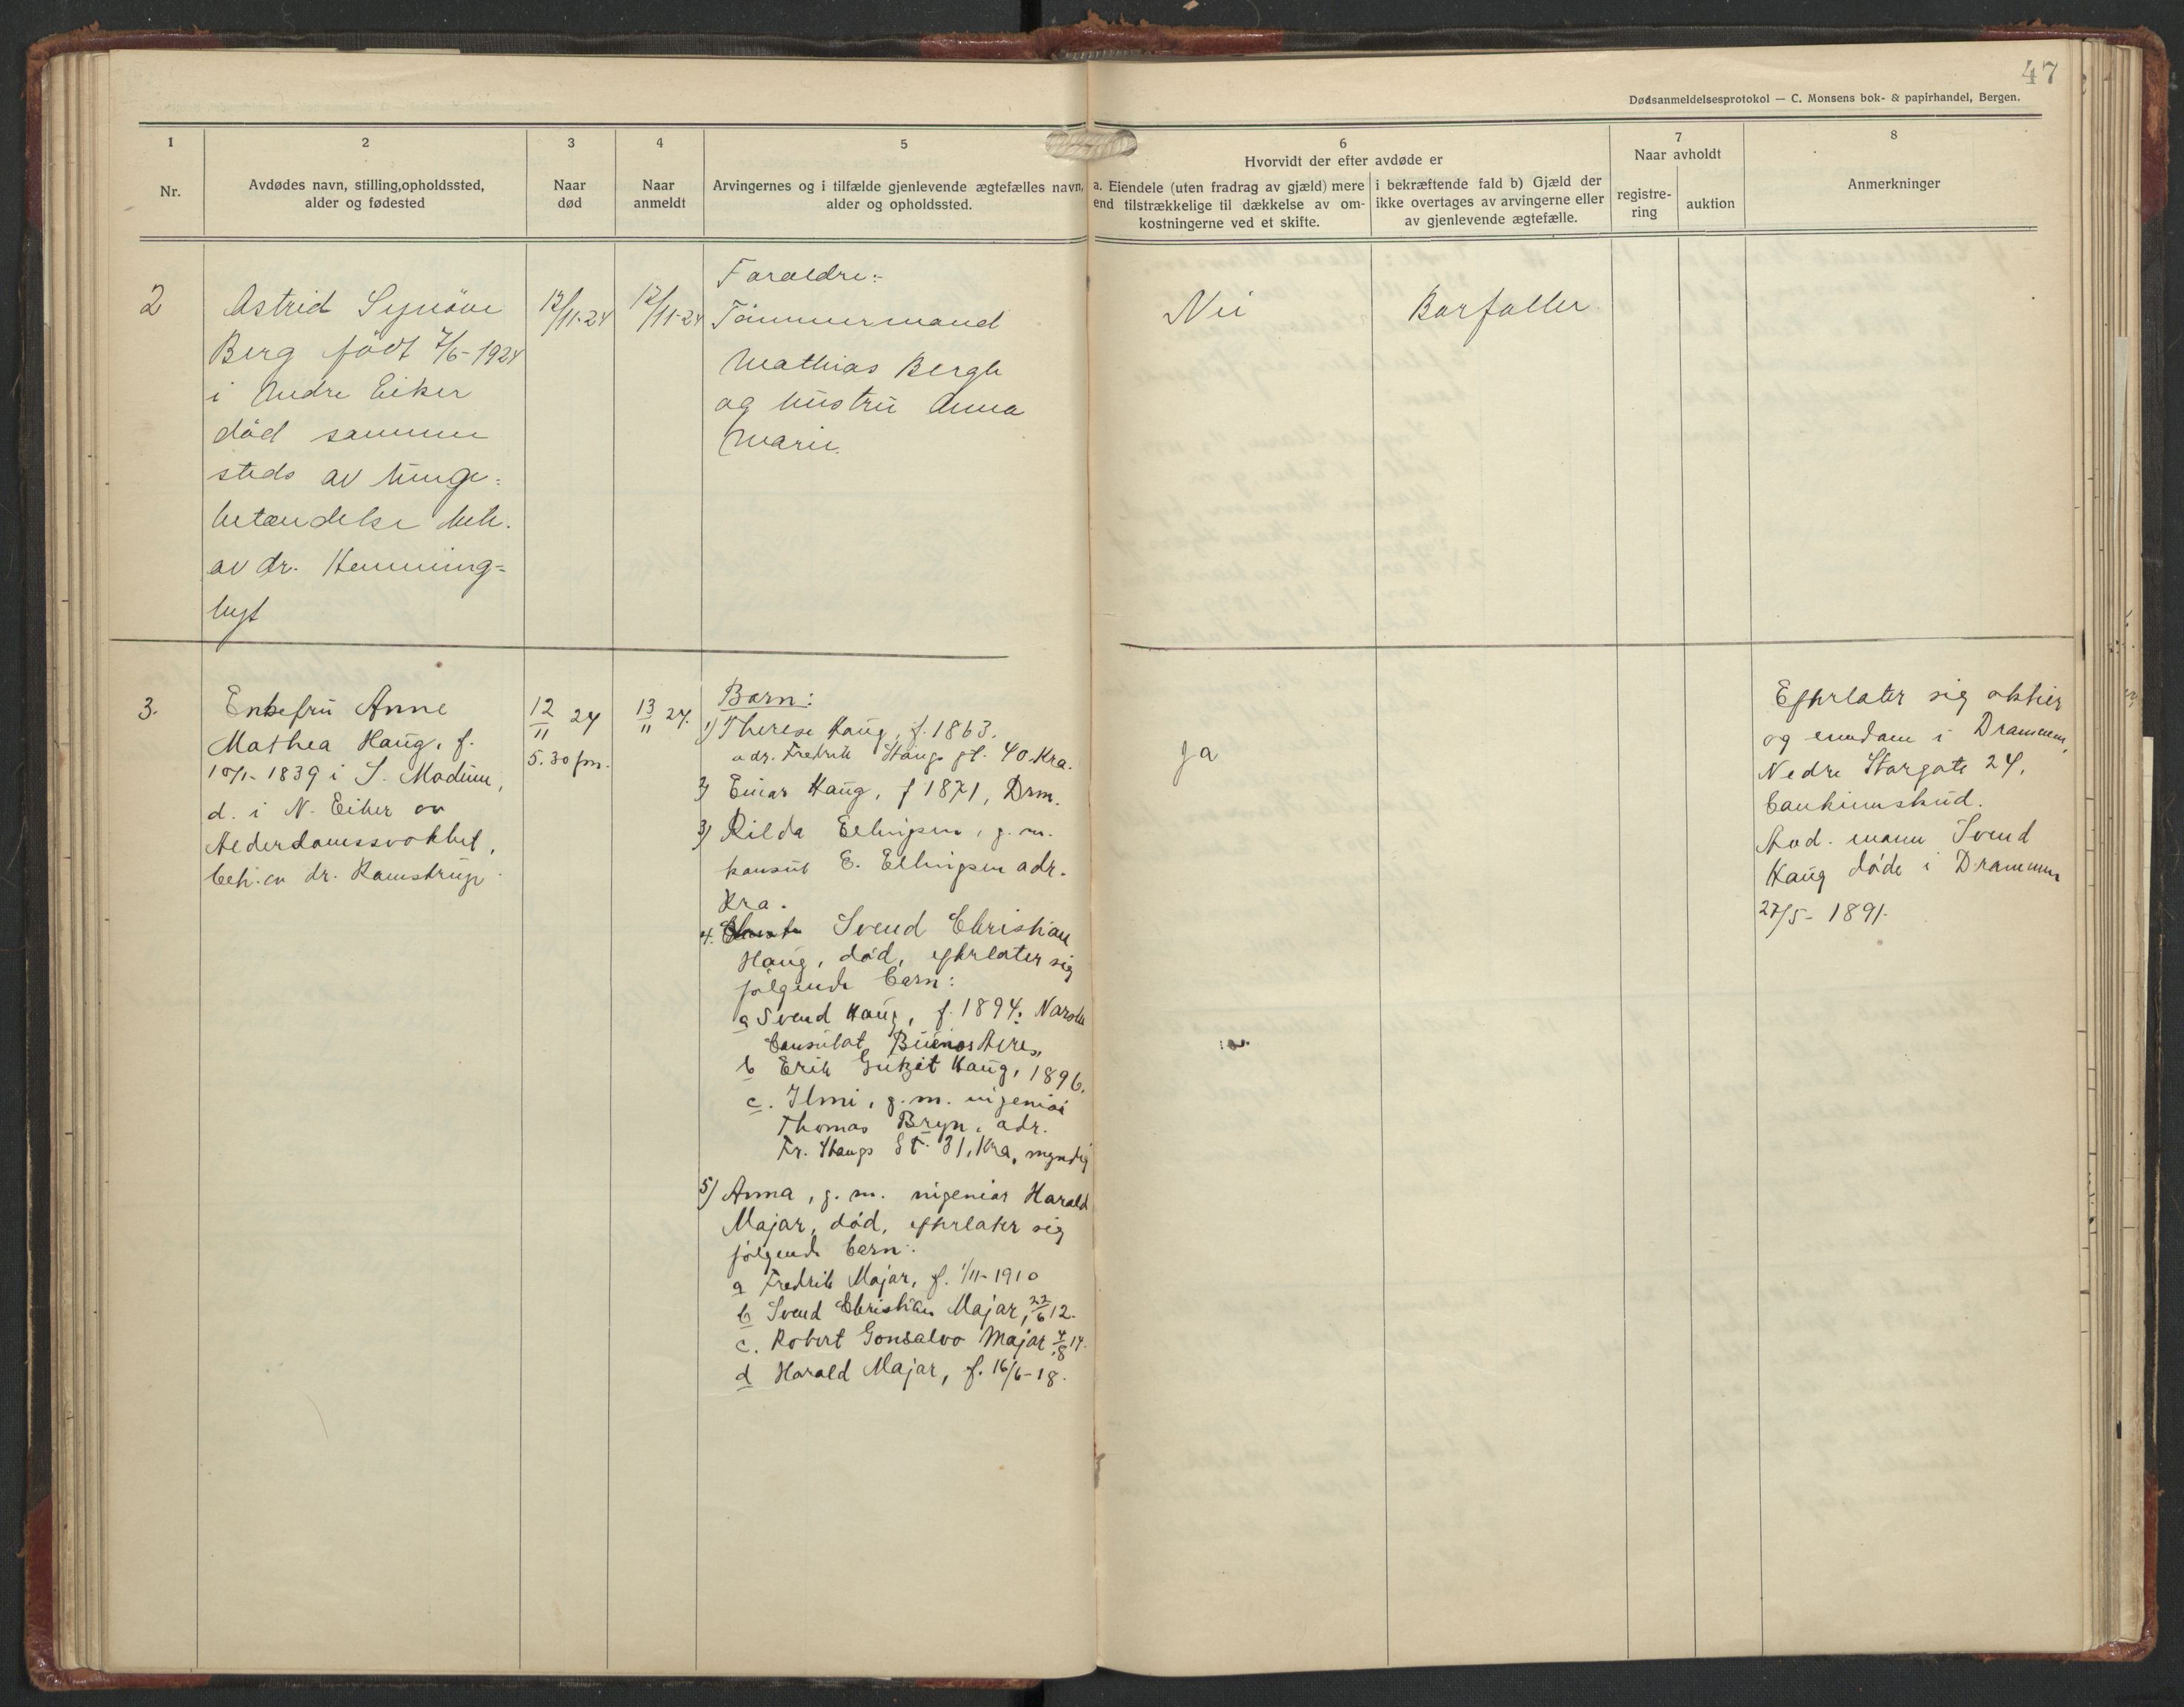 47
Dødsanmeldelsesprotokol — C. Monsens bok- & papirhandel, Bergen.
1
Nr.
2
Avdødes navn, stilling, opholdssted,
alder og fødested
3
Naar
død
4
Naar
anmeldt
5
Arvingernes og i tilfælde gjenlevende ægtefælles navn,
alder og opholdssted.
6
Hvorvidt der efter avdøde er
a. Eiendele (uten fradrag av gjæld) mere
end tilstrækkelige til dækkelse av om-
kostningerne ved et skifte.
i bekræftende fald b) Gjæld der
ikke overtages av arvingerne eller
av gjenlevende ægtefælle.
7
Naar avholdt
registre-
ring
auktion
8
Anmerkninger
2
Astrid Synöve
Berg født 7/6-1924
i Nedre Eiker
död samme
steds av lunge=
betændelse beh.
av dr. Hemming=
byt
12/11-24
12/11-24
Foraeldre:
Tömmermand
Mathias Bergh
og hustru Anna
Marie.
Nei
Borfaller.
3.
Enkefru Anne
Mathea Haug, f.
10/1-1839 i S. Modum,
d. i N. Eiker av
Alderdomssvakhet,
beh. av dr. Ramstrup
12/11 24
5.30 fm.
13/11 24.
Barn:
1) Therese Haug, f. 1863.
adr. Fredrik Stangs gt. 40 Kra.
2) Einar Haug, f 1871, Drm.
3) Rilda Ellingsen, g. m.
konsul E. Ellingsen adr.
Kra.
4. Svend Christian
Haug, död, efterlater sig
følgende barn:
a Svend Haug, f. 1894, Norske
Consulat, Buenos Aires,
b Erik Haug, 1896,
c. Ilmi, g. m. ingeniør
Thomas Bryn, adr.
Fr. Stangs Gt. 31, Kra, myndig
5) Anna, g. m. ingeniør Harald
Majar, död, efterlater sig
følgende barn:
a Fredrik Majar, f. 1/11-1910
b Svend Christian Majar, 22/6 12.
c. Robert Gonsalvo Majar 4/8 14.
d Harald Majar, f. 16/6-18.
Ja
Efterlater sig aktier
og eiendom i Drammen,
Nedre Storgate 24,
Avd. mann Svend
Haug döde i Drammen
27/5-1891.